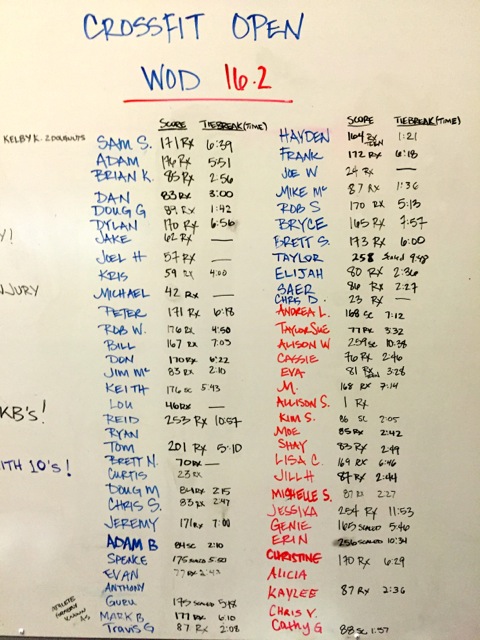 CROSSFIT OPEN
WOD 16.2
SCORE TIEBREAK (TIME)
KELBY K. 2 DOUGHNUTS
SAM S. 171 RX 6:39
ADAM RX 5:51
BRIAN K. 85 RX 2:56
DAN 83 RX 3:00
DOUG G RX 1:42
DYLAN 170 RX 6:56
Y!
JAKE 62 RX —
JOEL H 57 RX —
KRIS 59 RX 4:00
NJURY
MICHAEL 42 RX —
PETER 171 RX 6:18
ROB W. 176 RX 4:50
BILL 167 RX 7:03
DON 170 RX 6:22
JIM Mc 83 RX 2:10
KEITH 176 SC 5:43
LOU RX —
KB's!
REID 253 RX 10:57
RYAN
TOM 201 RX 5:10
BRETT N. 70 RX —
ITH 10's!
CURTIS 23 RX
DOUG M RX 2:15
CHRIS S. 83 RX 2:47
JEREMY 171 RX 7:00
ADAM B 84 SC 2:10
SPENCE 175 SCALED 5:50
EVAN 77 RX 2:43
ANTHONY
ATHLETE FORMERLY KNOWN AS
GURU 175 SCALED
MARK B 177 RX 6:10
TRAVIS G 87 RX 2:08
SCORE TIEBREAK (TIME)
HAYDEN 164 RX 1:21
FRANK 172 RX 6:18
JOE W 24 RX —
MIKE Mc 87 RX 1:36
ROB S 170 RX 5:13
BRYCE 165 RX 7:57
BRETT S. 173 RX 6:00
TAYLOR 258 Scaled 9:48
ELIJAH 80 RX 2:36
SAER 86 RX 2:27
CHRIS D. 23 RX —
ANDREA L. 168 SC 7:12
TAYLOR SUE 77 RX 3:32
ALISON W 259 SC 10:38
CASSIE 76 RX 2:46
EVA 81 RX 3:28
M. 168 RX 7:14
ALLISON S. 1 RX
KIM S. 86 SC 2:05
MOE 85 RX 2:42
SHAY 83 RX 2:49
LISA C. 169 RX 6:46
JILL H 87 RX 2:44
MICHELLE S. 87 RX 2:27
JESSIKA 254 RX 11:53
GENIE 165 SCALED 5:46
ERIN 256 SCALED 10:34
CHRISTINE 170 RX 6:29
ALICIA
KAYLEE 87 RX 2:36
CHRIS V.
CATHY G 88 SC 1:57